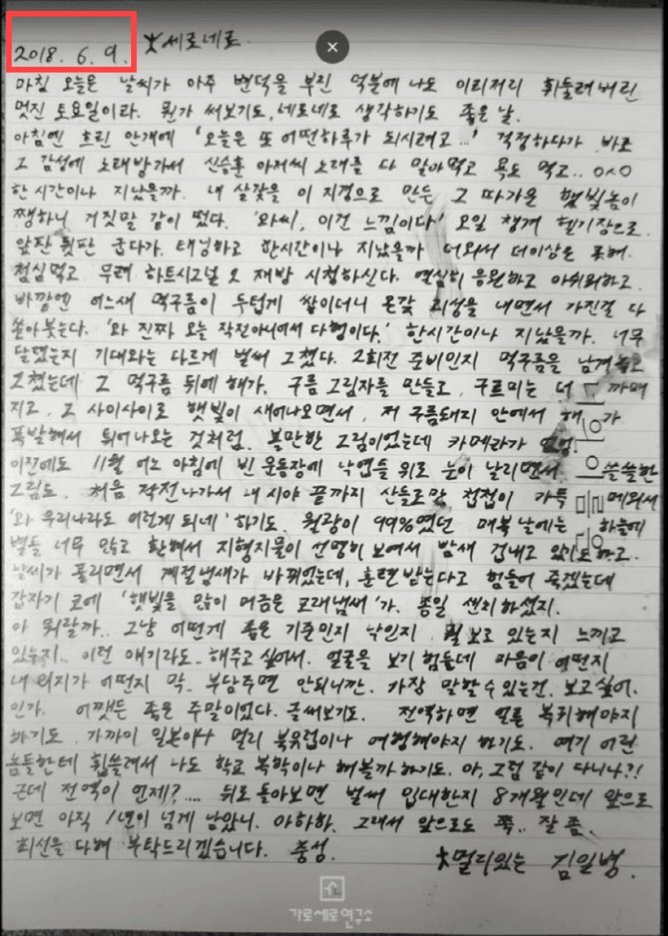 2018. 6. 9. 초세로네로.
마침 오늘은 날씨가 아주 변덕을 부린 덕분에 나도 이리저리 휘둘려버린
멋진 토요일이라. 뭔가 써보기도, 네로네로 생각하기도 좋은 날.
아침엔 흐린 안개에 '오늘은 또 어떤하루가 되시려고...' 걱정하다가 바로
그 감성에 노래방가서 신승훈 아저씨 노래를 다 말아먹고 욕도 먹고.. ㅇㅅㅇ
한시간이나 지났을까. 내 살갗을 이 지경으로 만든 그 따가운 햇빛놈이
쨍하니 거짓말 같이 떴다. '와씨, 이건 느낌이다' 오일 챙겨 헬기장으로.
앞판 뒷판 굽다가. 태닝하고 한시간이나 지났을까 더워서 더이상은 못해.
점심먹고 무려 하트시그널 2 재방 시청하신다. 열심히 응원하고 아쉬워하고.
바깥엔 어느새 먹구름이 두텁게 쌓이더니 온갖 괴성을 내면서 가진걸 다
쏟아붓는다. '와 진짜 오늘 작전아니여서 다행이다.' 한시간이나 지났을까. 너무
달랬는지 기대와는 다르게 벌써 그쳤다. 2회전 준비인지 먹구름을 남겨놓고
그쳤는데 그 먹구름 뒤에 해가. 구름 그림자를 만들고, 구르미는 더 까매
지고. 그 사이사이로 햇빛이 새어나오면서, 저 구름돼지 안에서 해가
폭발해서 튀어나오는 것처럼. 볼만한 그림이었는데 카메라가
이전에도 11월 어느 아침에 빈 운동장에 낙엽들 위로 눈이 날리면서 쓸쓸한
그림도. 처음 작전나가서 내 시야 끝까지 산들로만 첩첩이 가득 메워서
'와 우리나라도 이렇게 되네' 하기도. 월광이 99%였던 매복날에는 하늘에
별들 너무 많고 환해서 지형지물이 선명히 보여서 밤새 겁내고 있기도하고.
날씨가 풀리면서 계절냄새가 바뀌었는데, 훈련받는다고 힘들어 죽겠는데
갑자기 코에 '햇빛을 많이 머금은 모래냄새'가. 종일 센치하셨지.
아 뭐랄까.. 그냥 어떻게 좋은 기준인지 낙인지 뭘 보고 있는지 느끼고
있는지.. 이런 얘기라도.. 해주고 싶어서. 얼굴을 보기 힘든데 마음이 어떤지
내 의지가 어떤지 막. 부담주면 안되니깐. 가장 말할수 있는건. 보고싶어.
인가. 어쨋든 좋은 주말이었다. 글써보기도. 전역하면 얼른 복귀해야지
하기도. 가까이 일본이나 멀리 북유럽이나 여행해야지 하기도. 여기 어린
놈들한테 휩쓸려서 나도 학교 복학이나 해볼까하기도. 아, 그럼 같이 다니나?!
근데 전역이 언제?.... 뒤로 돌아보면 벌써 입대한지 8개월인데 앞으로
보면 아직 1년이 넘게 남았니. 아하하. 그래서 앞으로도 쭉.. 잘 좀.
최선을 다해 부탁드리겠습니다. 충성.
멀리있는 김일병.
가로세로연구소